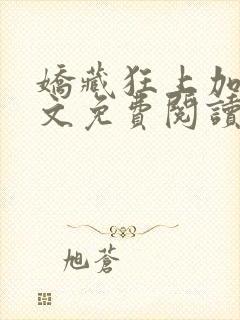 嬌藏狂上加
文免費閱讀
旭蒼